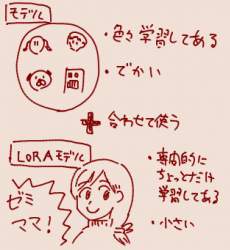 モデル
・色々学習してある
・でかい
+ 合わせて使う
LORAモデル
・専門的に
ちょっとだけ
学習してある
・小さい
ゼミ
ママ!